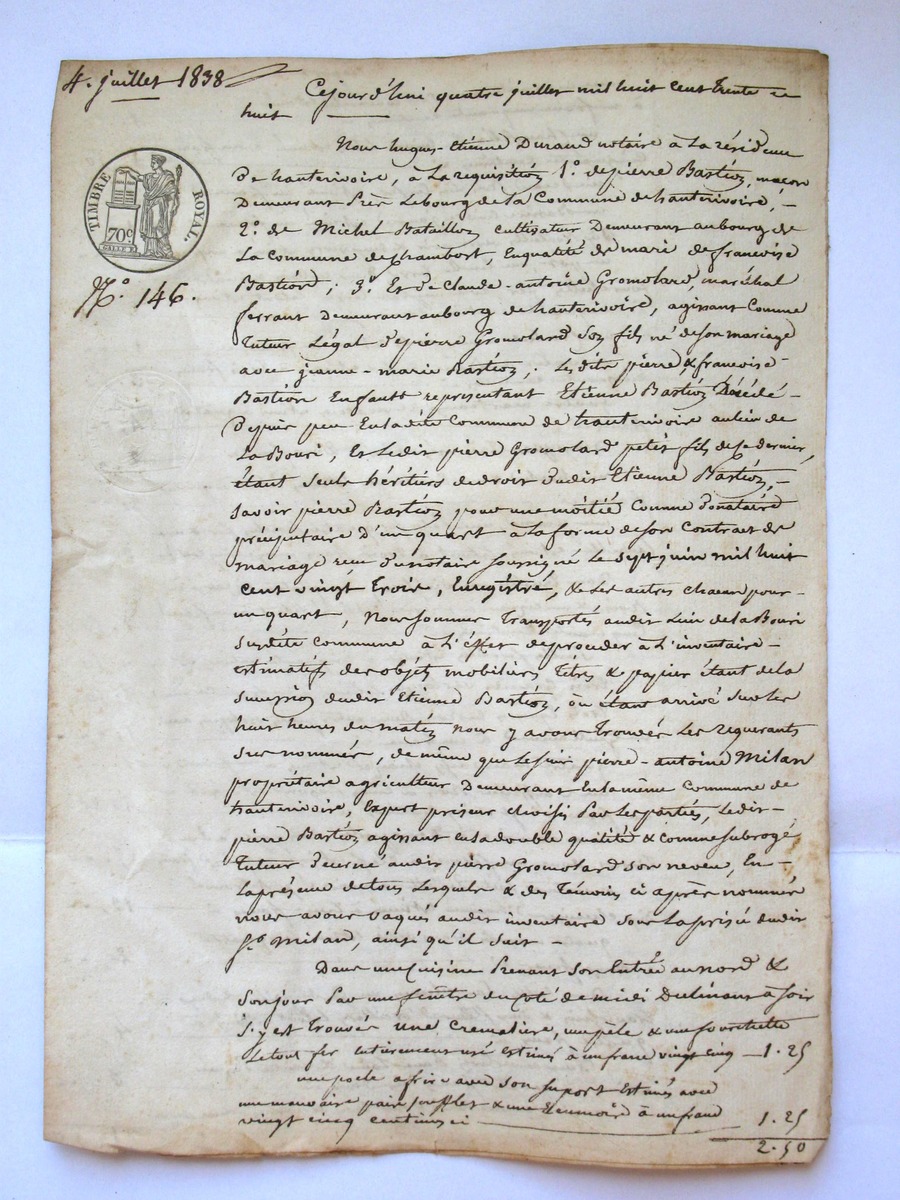 4. juillet 1838
Cejourd'hui quatre juillet mil huit cent trente et
huit
TIMBRE ROYAL.
70c
N.° 146.
Nous hugues-Etienne Durand notaire à la résidence
De hauterivoire, à la requisition 1.° de pierre Bastion, maçon
Demeurant près Le bourg de la Commune de hauterivoire,
2.° de Michel Bataillon cultivateur Demeurant au bourg de
La Commune de chambort, En qualité de mari de francoise
Bastion; 3.° Et De Claude-antoine Gromoland, maréchal
ferrant Demeurant au bourg de hauterivoire, agissant Comme
Tuteur Légal De pierre Gromoland son fils né de son mariage
avec jeanne-marie Bastion; Lesdits pierre & francoise
Bastion Enfants representant Etienne Bastion Décédé
Depuis peu En ladite Commune de hauterivoire au lieu de
La Bouri, Et Ledit pierre Gromoland petit fils de ce dernier,
étant Seuls héritiers de droit Dudit Etienne Bastion,
savoir pierre Bastion pour une moitié Comme Donataire
préciputaire D'un quart à la forme de son Contract de
mariage recu Du notaire soussigné Le sept juin mil huit
cent vingt trois, Enregistré, & Les autres chacun pour
un quart, Nous sommes Transportés audit Lieu de la Bouri
susdite commune à L'effet de proceder à L'inventaire
estimatif des objets mobiliers, titres & papier étant de la
succession dudit Etienne Bastion, où étant arrivé sur Les
huit heures du matin nous y avons trouvés Les requerants
sus nommés, de même que Le sieur pierre-antoine Milan
propriétaire agriculteur Demeurant En la même Commune de
hauterivoire, Expert priseur choisi Par Les parties, Ledit
pierre Bastion agissant en sa double qualité & comme subrogé
Tuteur Decerné audit pierre Gromoland son neveu, En
La présence de tous Lesquels & des Témoins ci après nommés
nous avons vaqués audit inventaire sous La prisée dudit
S.r Milan, ainsi qu'il suit
Dans une Cuisine Prenant son Entrée au nord &
son jour Par une fenêtre du coté de midi Declinant à soir
s'y est trouvés une Cremaliere, une pêle & une fourchette
Le tout fer entierement usé estimés à un franc vingt cinq 1.25
une poele a frire avec son suport Estimés avec
une mauvaise paire soufflet & une Ecumoire à un franc
vingt cinq centimes ci 1.25
2.50